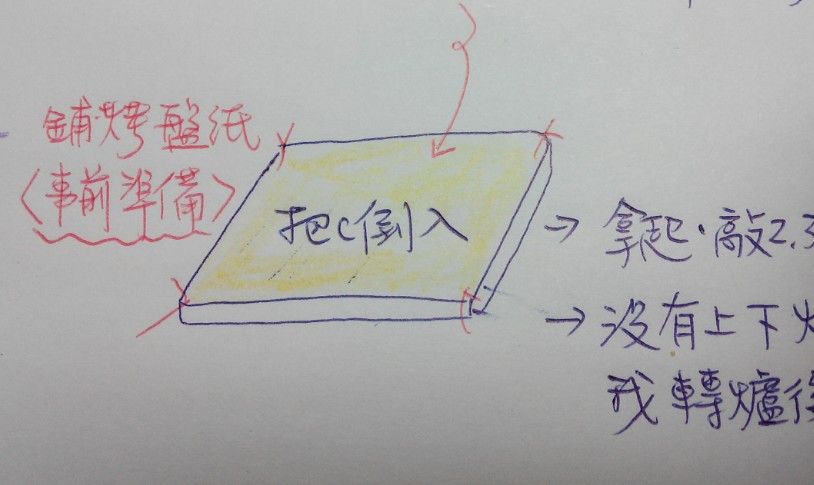 鋪烤盤紙
<事前準備>
把C倒入
→ 拿起·敲2.3
→ 沒有上下火
我轉爐後